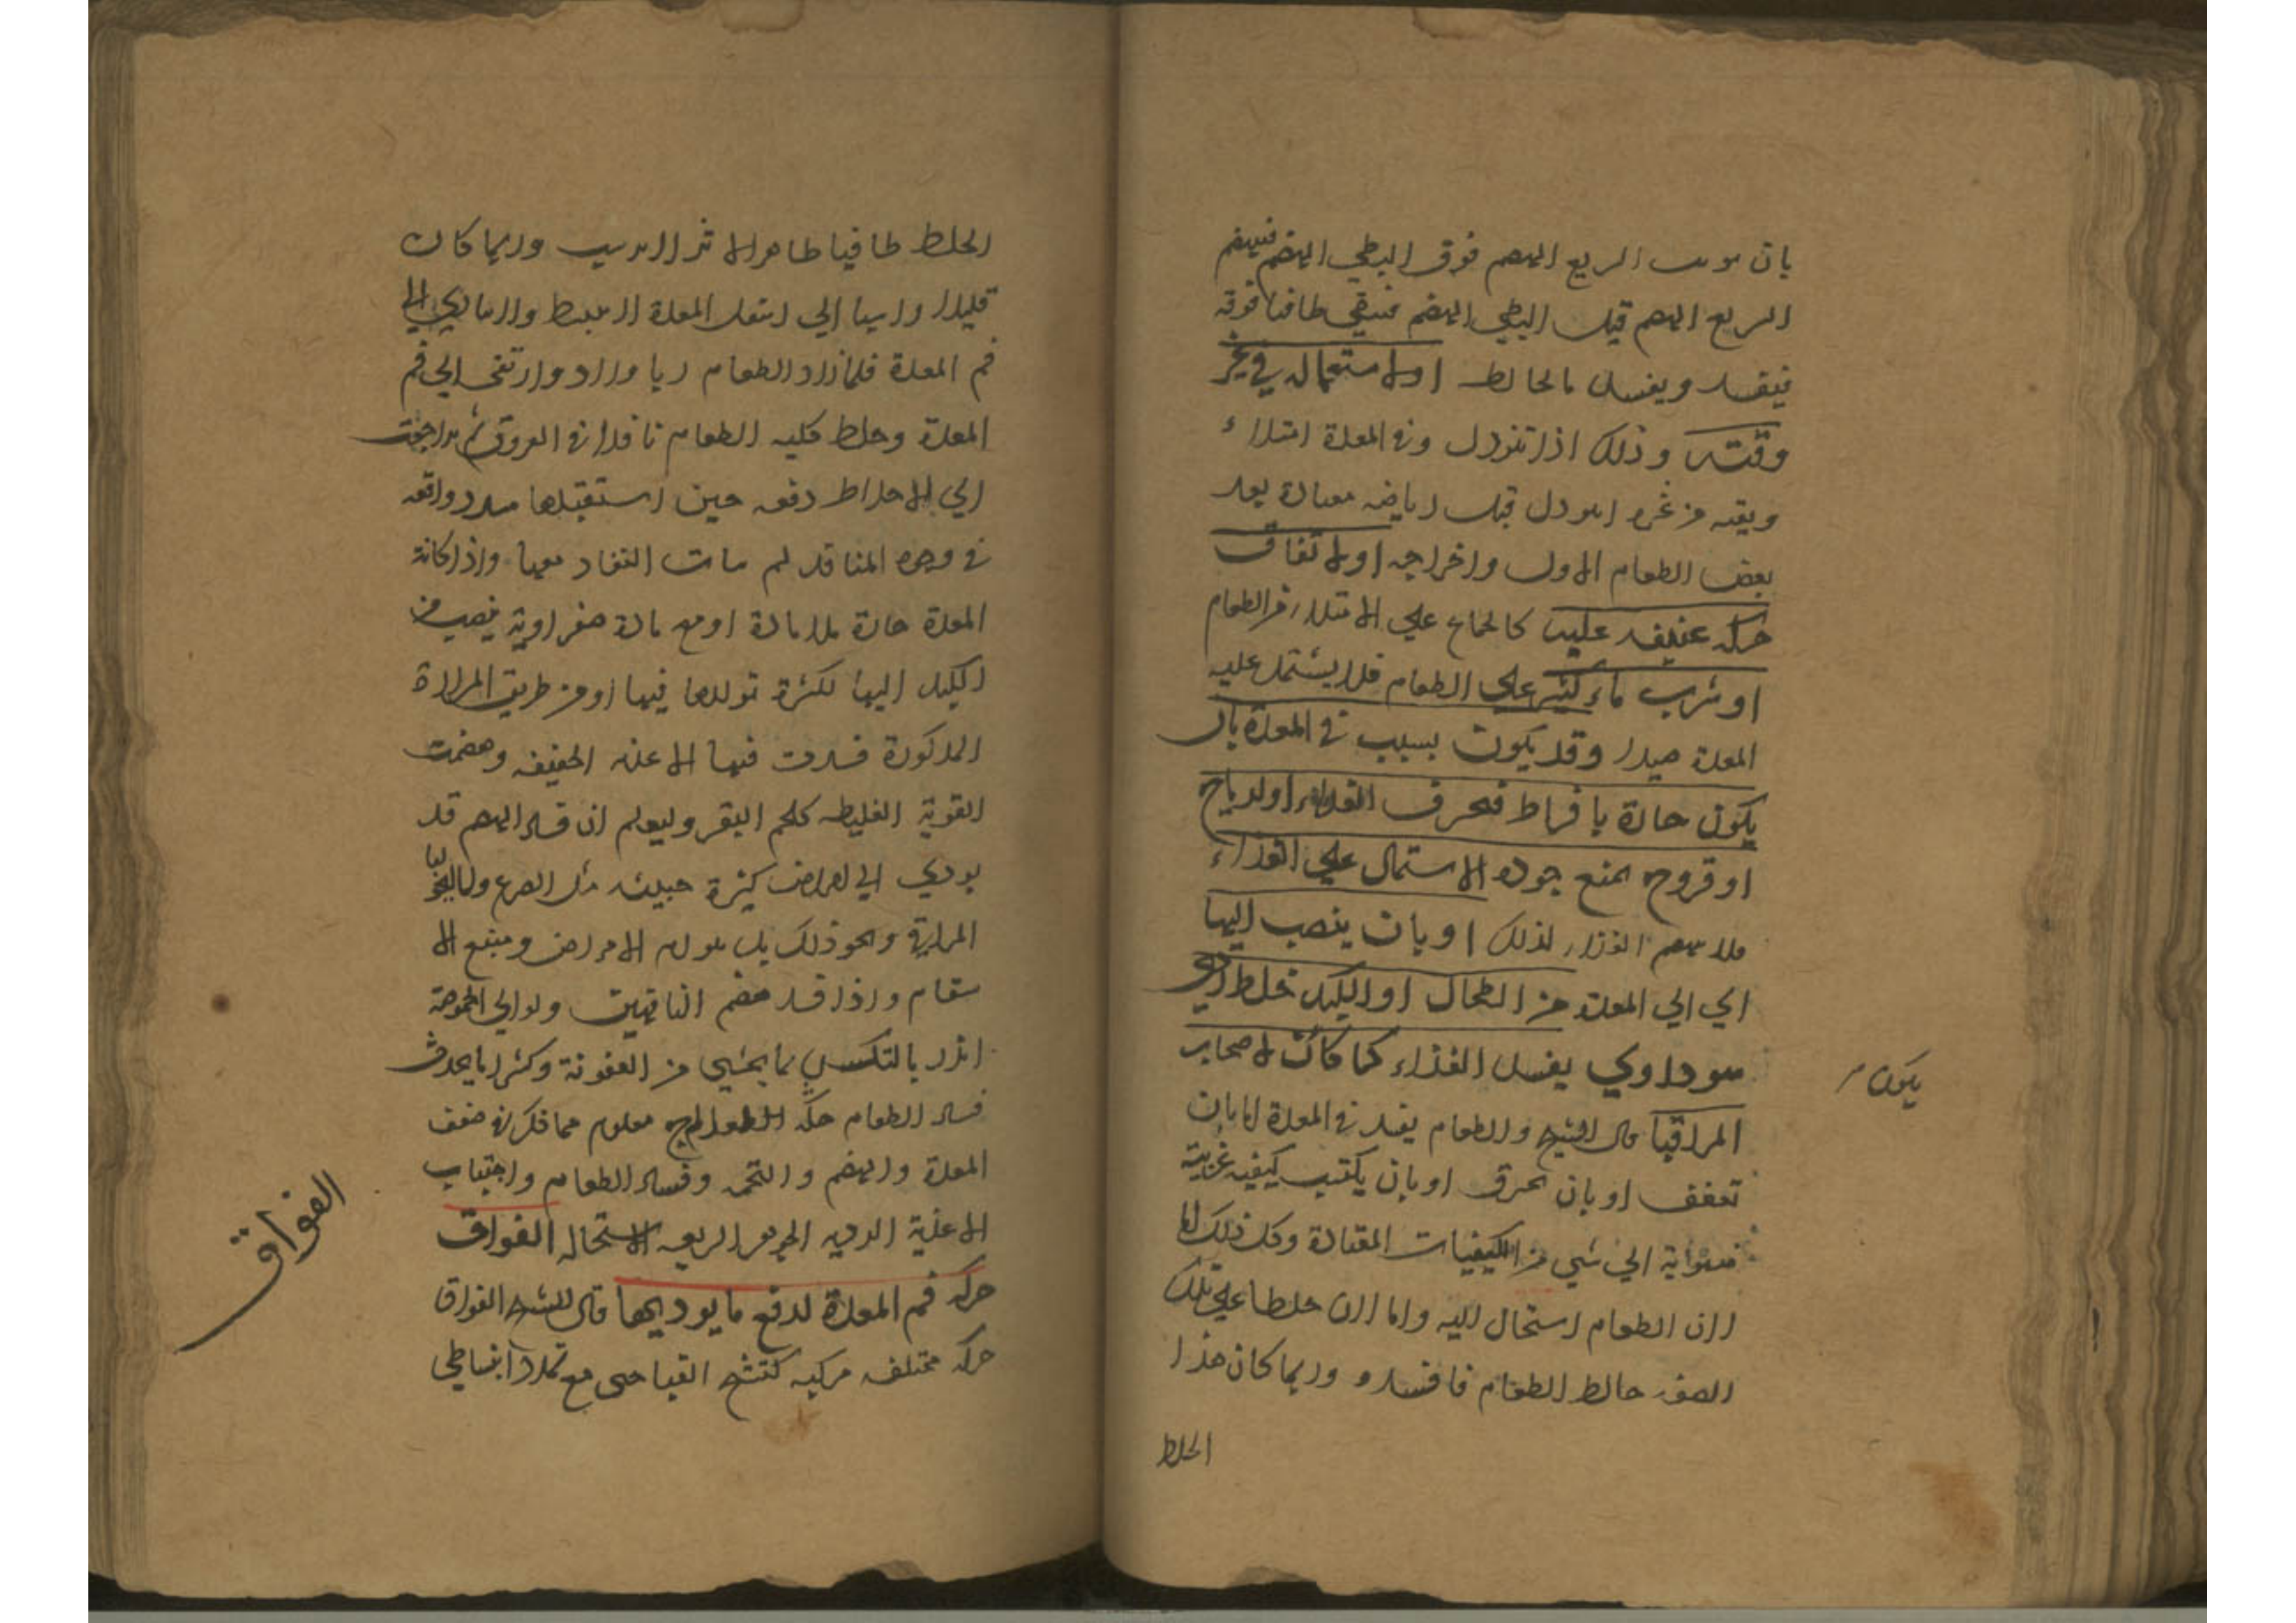 بان يوخر السريع الهضم فوق البطي الهضم فينهضم
السريع الهضم قبل البطي الهضم فيبقي طافيا فوقه
فيفسد ويفسد ما يخالطه او لاستعماله في غير
وقته وذلك اذا تنوول وفي المعدة امتلاء
وبقيه من غيره او تنوول قبل رياضه معتادة بعد
بعض الطعام الاول واخراجه او لاتفاق
حركه عنيفه عليه كالجماع علي الامتلاء من الطعام
او شرب ماء كثير علي الطعام فلا يشتمل عليه
المعدة جيدا وقد يكون بسبب في المعدة بان
يكون حارة بافراط فيحرق الغذاء او لرياح
او قروح يمنع جودة الاشتمال علي الغذاء
فلا ينهضم الغذاء لذلك او بان ينصب اليها
اي الي المعدة من الطحال او الكبد خلط ردي
سوداوي يفسد الغذاء كما كان لاصحاب
يكون
المراقيا قال الشيخ والطعام يفسد في المعدة اما بان
تعفن او بان تحرق او بان يكتسب كيفيه غريبة
الي شي من الكيفيات المعتادة وكل ذلك اما
لان الطعام استحال اليه واما لان خلطا علي تلك
الصفه خالط الطعام فافسده وربما كان هذا
الخلط
الخلط طافيا ظاهر الاثر وربما كان
قليلا راسبا الي اسفل المعدة
فم المعدة فلما زاد الطعام ربا وزاد وارتفع الي فم
المعدة وخلط كليه الطعام نافذا في العروق ثم تراجعت
الي الاخلاط دفعه حين استقبلها سدد واقعه
في وجوه المنافذ لم النفاذ معها واذا كانة
المعدة حارة بلا مادة او مع مادة صفراوية ينصب من
الكبد اليها لكثرة تولدها فيها او من طريق المرارة
المذكورة فسدت فيها الاغذيه الخفيفه وهضمت
القوية الغليظه كلحم البقر وليعلم ان فساد الهضم قد
يودي الي امراض كثيرة خبيثه مثل الصرع والماليخوليا
المراقية ونحو ذلك بل هو ام الامراض ومنبع الا
سقام واذا فسد هضم الناقهين ولو الي الحموضة
انذر بالنكس بما يخشي من العفونة وكثيرا ما يحدث
فساد الطعام حكة العلاج معلوم مما ذكر في ضعف
المعدة والهضم والتخمه وفساد الطعام واجتناب
الاغذية الرديه الجوهر السريعه الاستحاله الفواق
حركه فم المعدة لدفع ما يوذيها قال الشيخ الفواق
حركه مختلفه مركبه كتشنج انقباضي مع تمدد انبساطي
الفواق